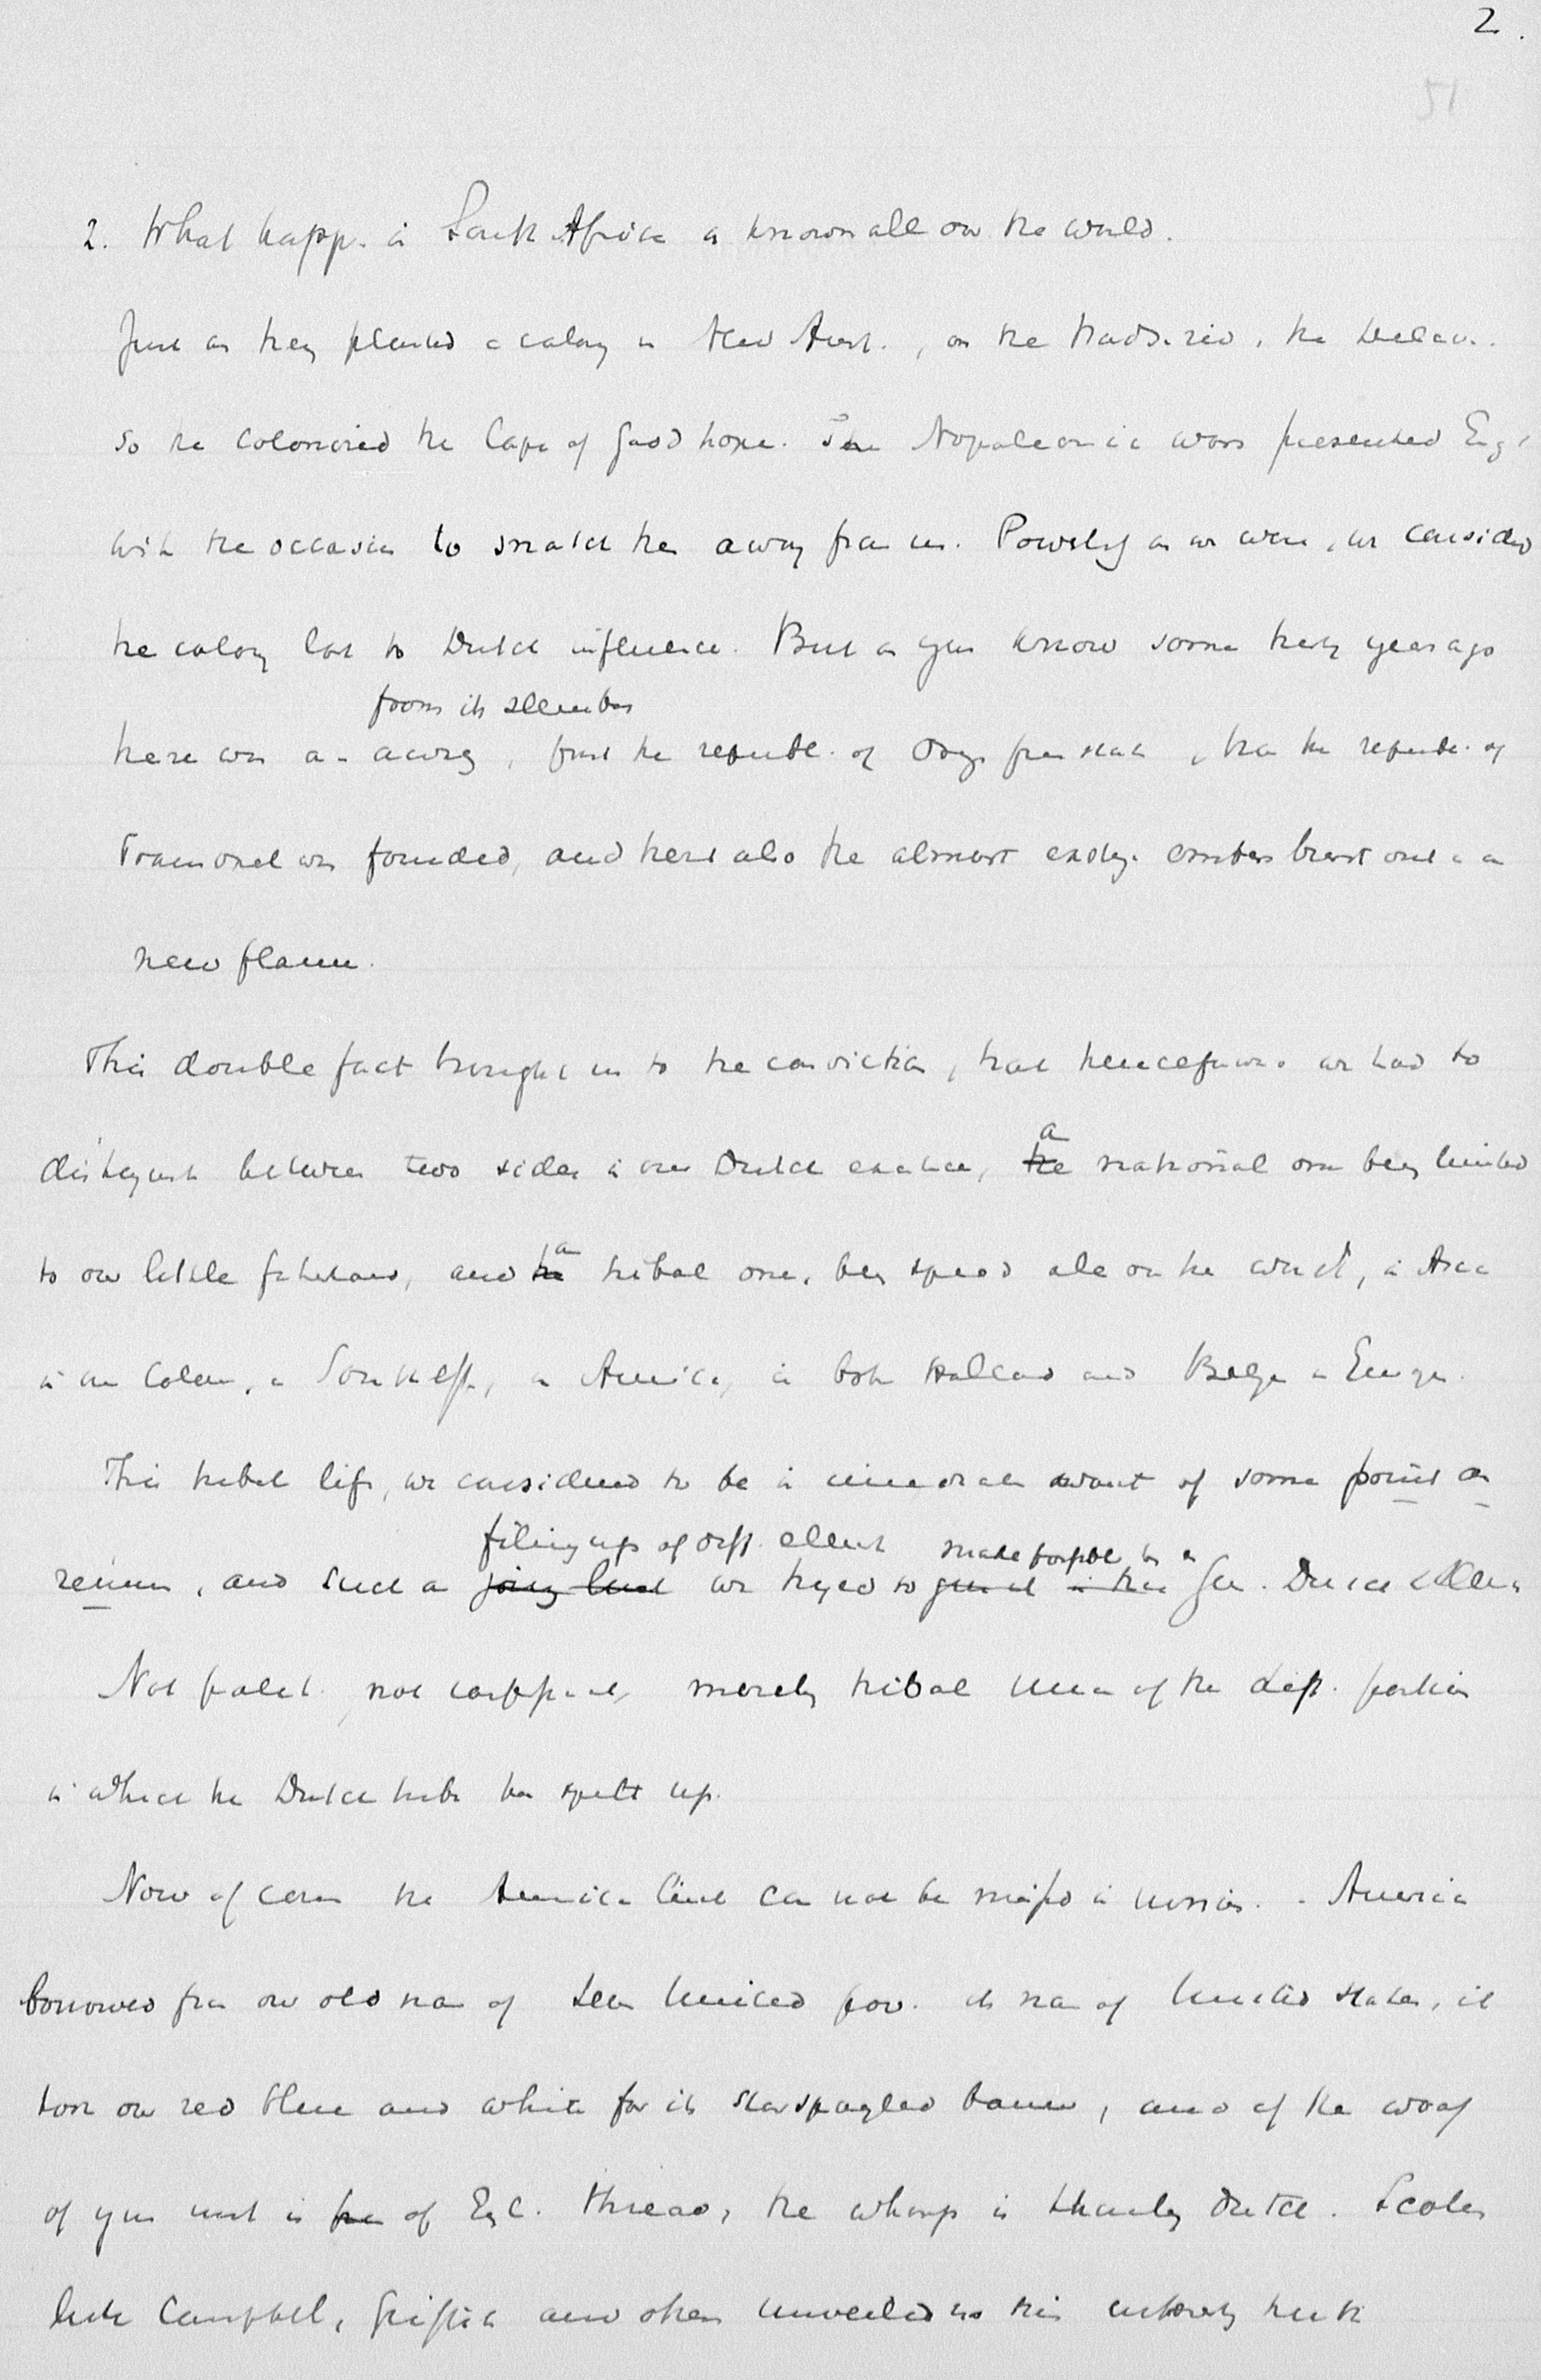 2.
51
2. What happ. in South Africa is known all over the world.
Just as they planted a colony in New Amst., on the Hudson river, the Delaw.
so the colonized the Cape of Good hope. The Napoleonic wars presented Engl
with the occasion to snatch her away from us. Powerless as we were, we considered
the colony lost to Dutch influence. But as you know some thirty years ago
from its slumber
there was an awang, first the republ. of Orange free state, then the republ. of
Transvaal was founded, and there also the almost exting. embers burst out in a
new flame.
This double fact brought us to the conviction, that henceforward we had to
a
distinguish between two sides in our Dutch existence, the national one being limited
a
to our little fatherland, and the tribal one, being spread all over the world, in Asia
in our Colon., in South Afr., in America, in both Holland and Belg. in Europe.
This tribal life, we considered to be in want of some point de
filling up of diff. element made possible by an
reunion, and such a we tryed to Gen. Dutch
Not polit. not merely tribal union of the diff. portions
in which the Dutch tribe has split up.
Now of course the American link can not be missed in this union. America
borrowed from our old name of United prov. its name of United States, it
took our red blue and white for its starspangled banner, and if the woof
of your unit is of Engl. thread, the wharp is Dutch. Scholars
like Campbell, Griffis and others unveiled us this truth